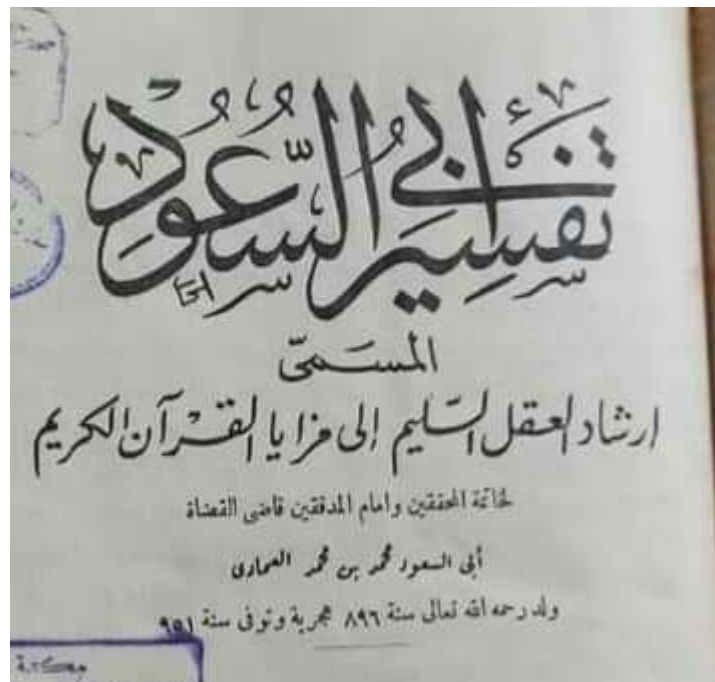 تفسير أبي السعود
المسمى
ارشاد العقل السليم إلى مزايا القرآن الكريم
لخاتمة المحققين وامام المدققين قاضى القضاة
أبى السعود محمد بن محمد العمارى
ولد رحمه الله تعالى سنة ٨٩٦ هجرية وتوفى سنة ٩٥١
مكتبة